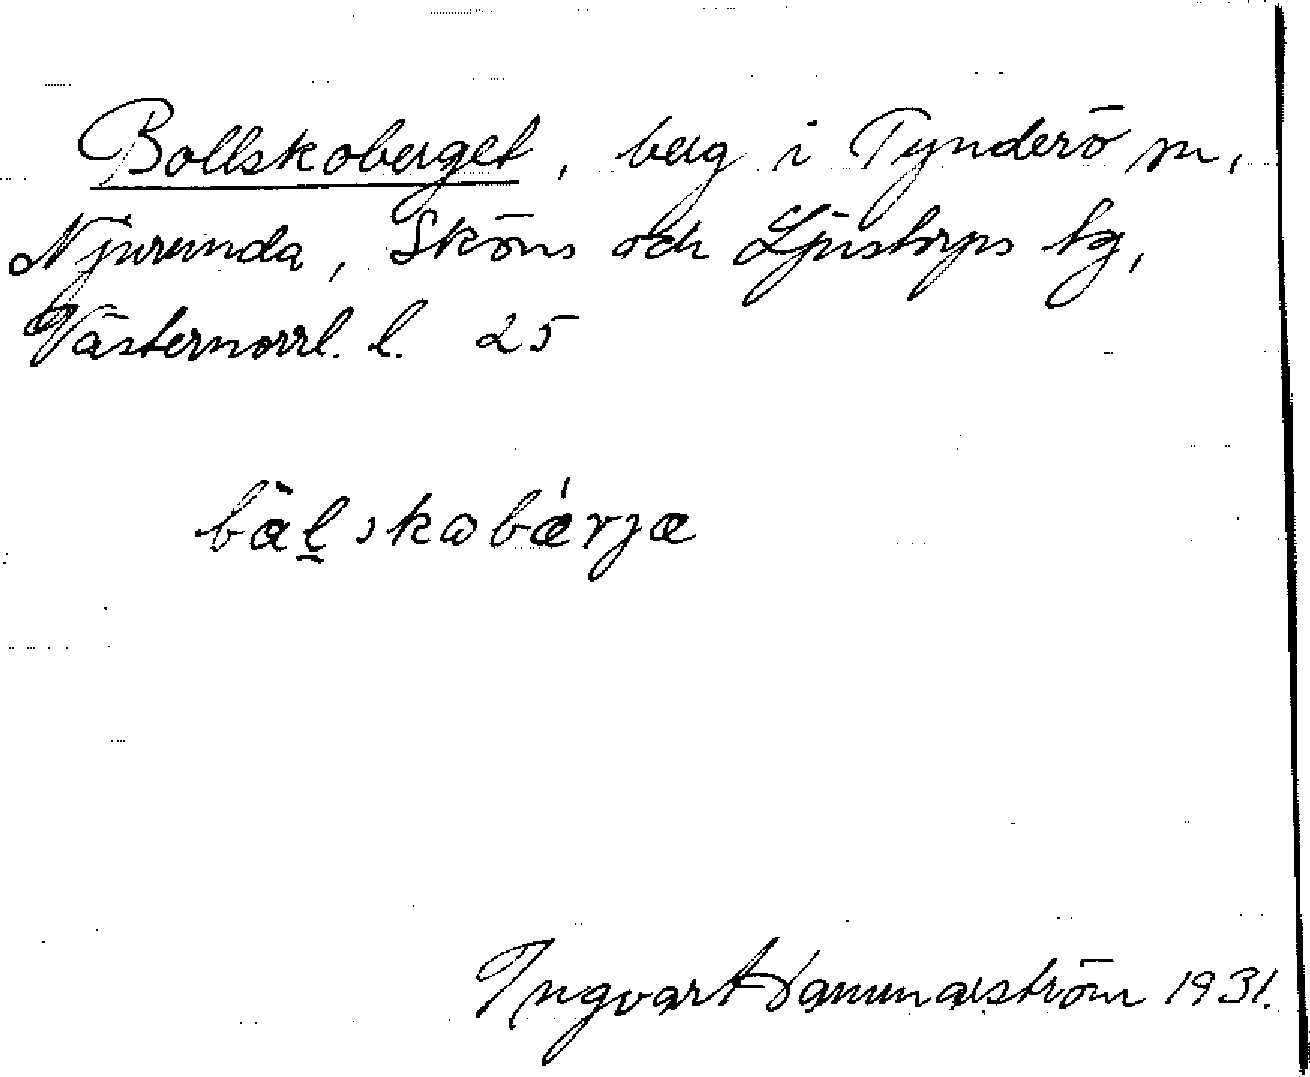 Bollskoberget, berg i Tynderö sn,
Njurunda, Sköns och Ljustorps tg,
Västernorrl. l. 25
bàl̠skabǽrjæ
Ingvar Hammarström 1931.